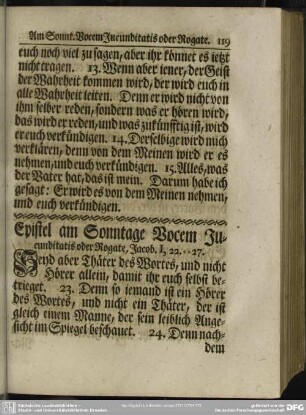 Am Sonnt. Vocem Jucunditatis oder Rogate. 119
euch noch viel zu sagen, aber ihr könnet es ietzt
nicht tragen. 13. Wenn aber iener, der Geist
der Wahrheit kommen wird, der wird euch in
alle Wahrheit leiten. Denn er wird nicht von
ihm selber reden, sondern was er hören wird,
das wird er reden, und was zukünfftig ist, wird
er euch verkündigen. 14. Derselbige wird mich
verklären, denn von dem Meinen wird er es
nehmen, und euch verkündigen. 15. Alles, was
der Vater hat, das ist mein. Darum habe ich
gesagt: Er wird es von dem Meinen nehmen,
und euch verkündigen.
Epistel am Sonntage Vocem Ju-
cunditatis oder Rogate, Jacob. I, 22. - 27.
Seyd aber Thäter des Wortes, und nicht
Hörer allein, damit ihr euch selbst be-
trieget. 23. Denn so iemand ist ein Hörer
des Wortes, und nicht ein Thäter, der ist
gleich einem Manne, der sein leiblich Ange-
sicht im Spiegel beschauet. 24. Denn nach-
dem